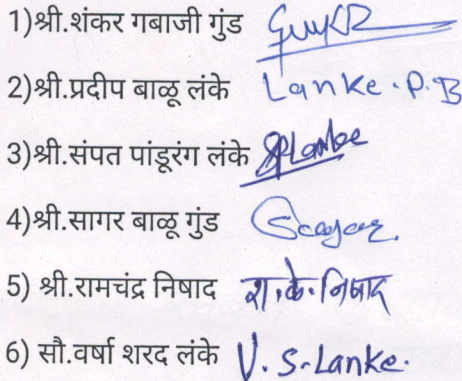 1)श्री.शंकर गबाजी गुंड
2)श्री.प्रदीप बाळू लंके Lanke.P.B
3)श्री.संपत पांडूरंग लंके SPLanke
4)श्री.सागर बाळू गुंड Sagar
5) श्री.रामचंद्र निषाद रा.के.निषाद
6) सौ.वर्षा शरद लंके V.S.Lanke.